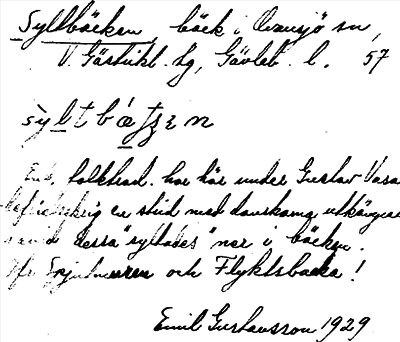 Syltbäcken, bäck i Ovansjö sn,
V. Gästrikl. hg, Gävleb. l. 57
syltbätzen
Enl. folktrad. har här under Gustav Vasas
befrielsekrig en strid med danskarna utkämpats
varvid dessa "syltades" ner i bäcken.
Jfr Spjutmuren och Flyktsbacka!
Emil Gustavsson 1929